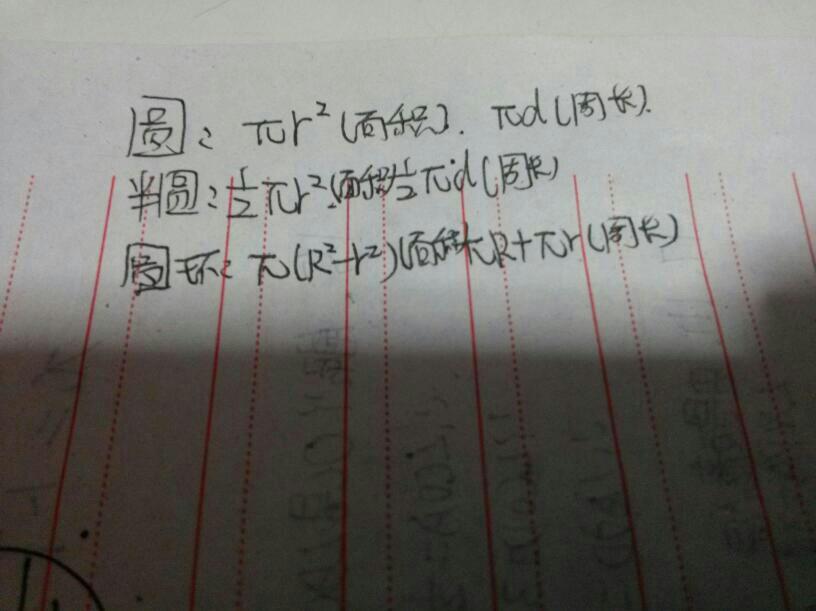 圆：πr²(面积). πd(周长).
半圆：½πr².(面积)½πd(周长)
圆环：π(R²-r²)(面积)πR+πr(周长)